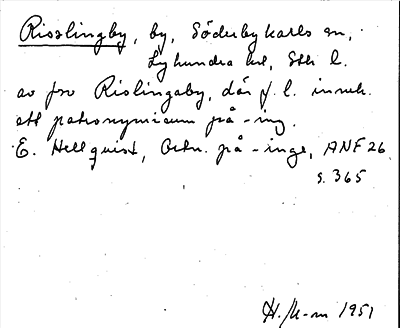 Risslingby, by, Söderbykarls sn,
Lyhundra hd, Sthl l.
av fsv Rislingaby, där f. l. inneh.
ett patronymicum på -ing.
E. Hellquist, Ortn. på -inge, ANF 26
s. 365
H. M-m 1951